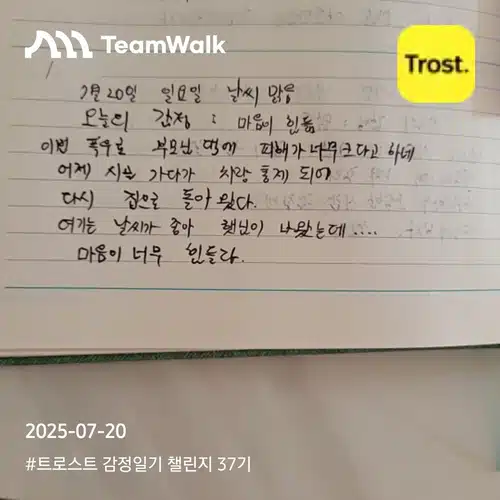 TeamWalk
Trost.
7월 20일 일요일 날씨 맑음
오늘의 감정 : 마음이 힘듦
이번 폭우로 부모님 댁에 피해가 너무 크다고 하네
어제 시골 가다가 차량 통제 되어
다시 집으로 돌아 왔다.
여기는 날씨가 좋아 햇님이 나왔는데....
마음이 너무 힘들다.
2025-07-20
#트로스트 감정일기 챌린지 37기